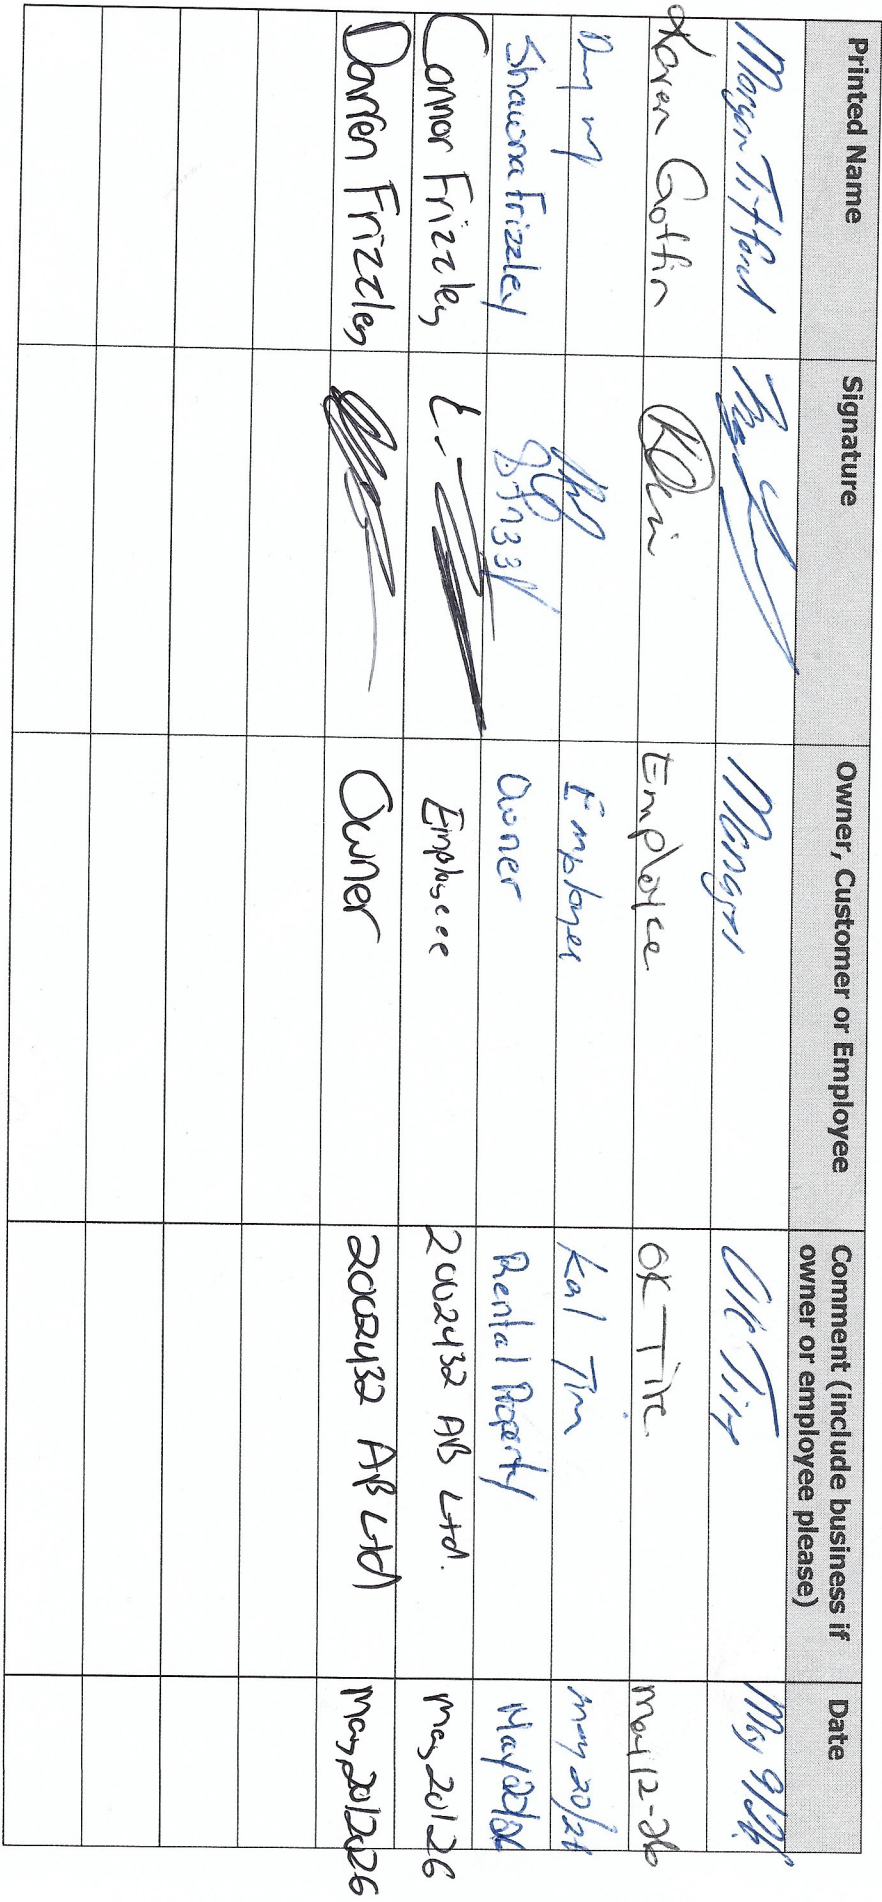 Printed Name Signature Owner, Customer or Employee Comment (include business if owner or employee please) Date
Morgan Titford Manager OK Tire May 9/26
Karen Goffin Employee OK Tire May 12-26
Employee Kal Tire May 20/26
Shawna Frizzley Owner Rental Property May 20/26
Connor Frizzley Employeee 2002432 AB Ltd. May 20/26
Darren Frizzley Owner 2002432 AB Ltd May, 20/2026